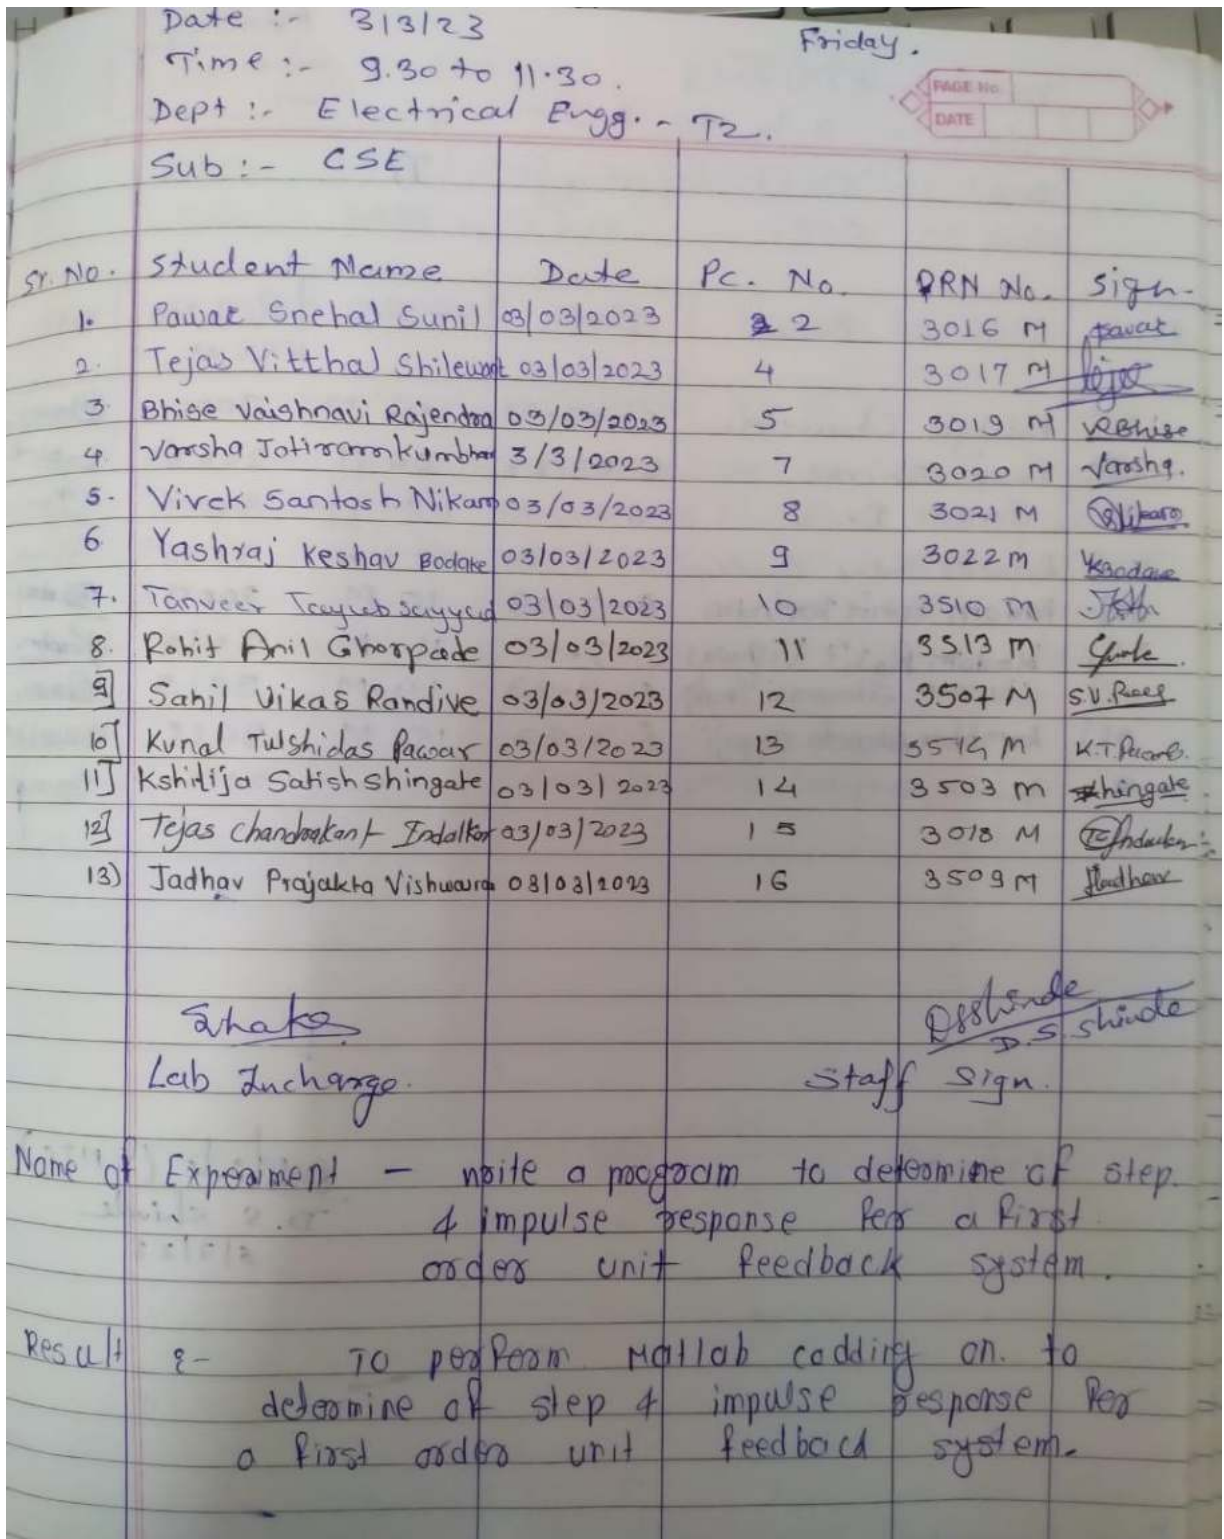 Date :- 3/3/23 Friday.
Time :- 9.30 to 11.30.
PAGE No.
Dept :- Electrical Engg. - T2.
DATE
Sub :- CSE
Sr. No. Student Name Date Pc. No. PRN No. Sign.
1. Pawar Snehal Sunil 03/03/2023 2 3016 M Pawar
2. Tejas Vitthal Shilewant 03/03/2023 4 3017 M
3. Bhise Vaishnavi Rajendra 03/03/2023 5 3019 M VRBhise
4. Varsha Jotiram Kumbhar 3/3/2023 7 3020 M Varsha.
5. Vivek Santosh Nikam 03/03/2023 8 3021 M
6 Yashraj Keshav Bodake 03/03/2023 9 3022 M
7. Tanveer Tayyub Sayyad 03/03/2023 10 3510 M
8. Rohit Anil Ghorpade 03/03/2023 11 3513 M
9] Sahil Vikas Randive 03/03/2023 12 3507 M
10] Kunal Tulshidas Pawar 03/03/2023 13 3514 M
11] Kshitija Satish Shingate 03/03/2023 14 3503 M Shingate
12] Tejas Chandrakant Indalkar 03/03/2023 15 3018 M
13) Jadhav Prajakta Vishwas 03/03/2023 16 3509 M Jadhav
DSShinde
D.S. Shinde
Lab Incharge. Staff Sign.
Name of Experiment - write a program to determine of step.
& impulse response for a first
order unit feedback system.
Result :- To perform Matlab codding on. to
determine of step & impulse response for
a first order unit feedback system.